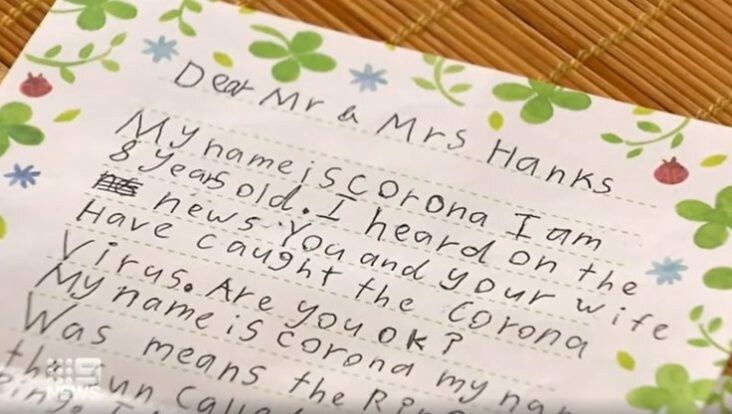 Dear Mr & Mrs Hanks
My name is corona I am
8 years old. I heard on the
news. You and your wife
Have caught the corona
Virus. Are you ok?
My name is corona my nam
Was means the Ring
the un calle
9
NEWS